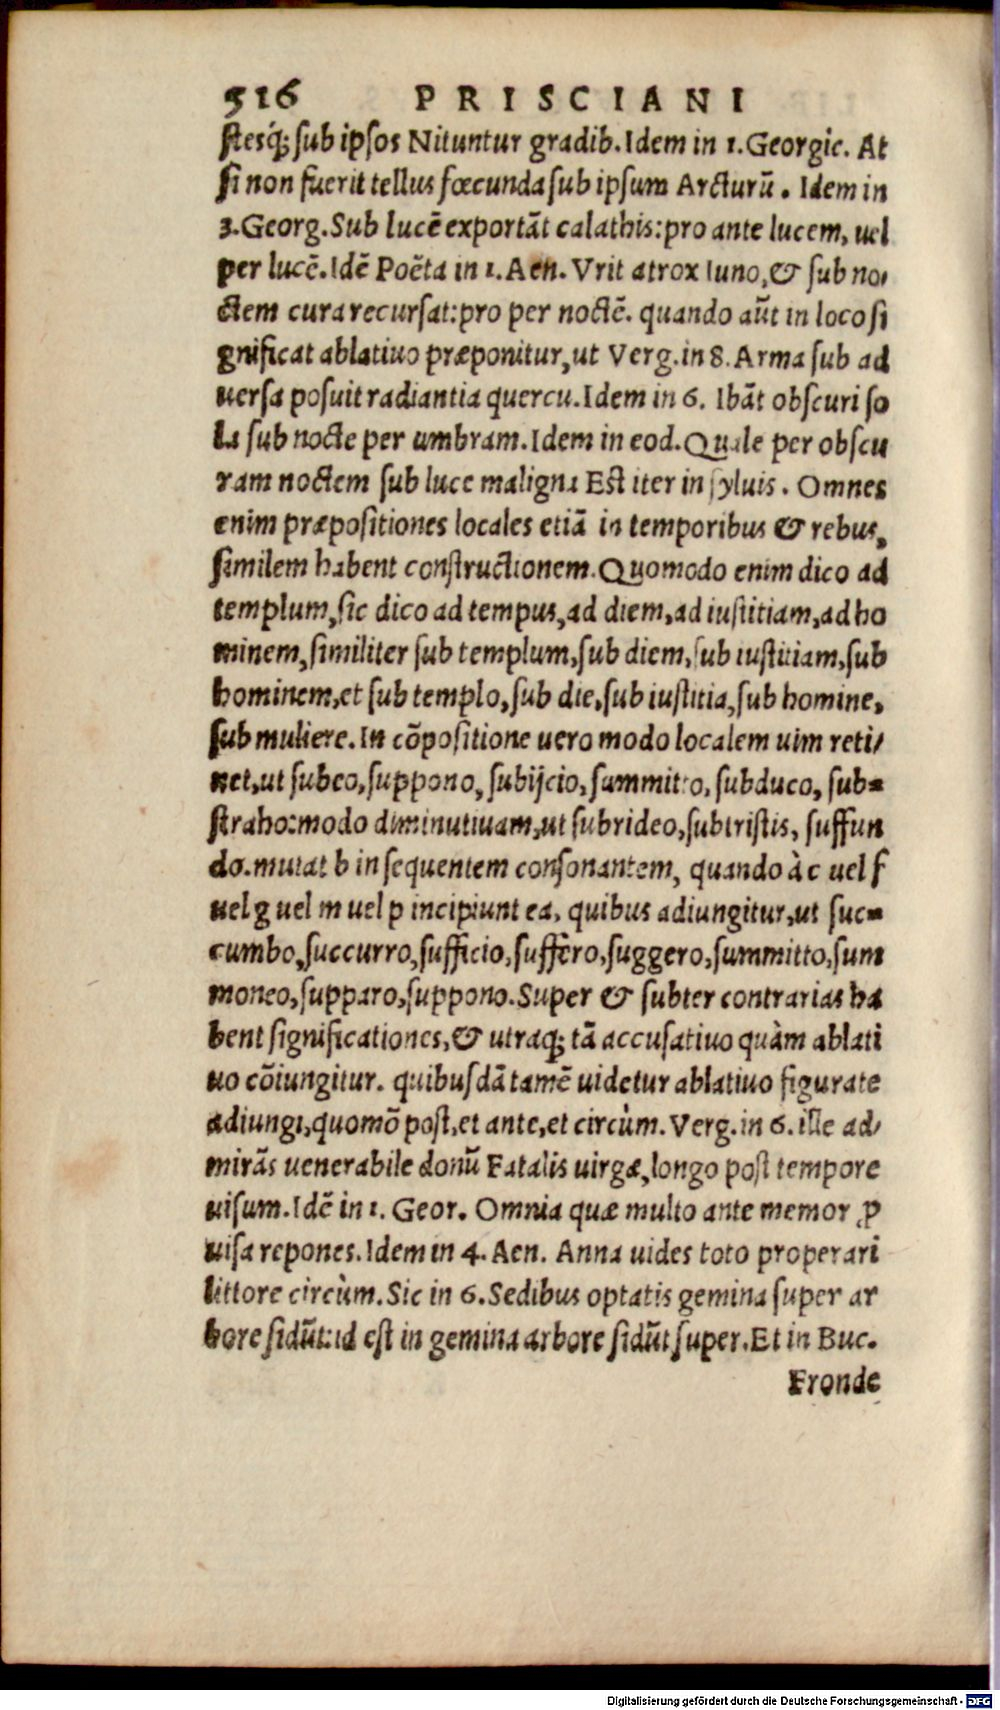 516 PRISCIANI
stesq́; sub ipsos Nituntur gradib. Idem in 1. Georgic. At
si non fuerit tellus fœcunda sub ipsum Arcturū. Idem in
3. Georg. Sub lucē exportāt calathis: pro ante lucem, uel
per lucē. Idē Poëta in 1. Aen. Vrit atrox Iuno, & sub no-
ctem cura recursat: pro per noctē. quando aūt in loco si
gnificat ablatiuo præponitur, ut Verg. in 8. Arma sub ad
uersa posuit radiantia quercu. Idem in 6. Ibāt obscuri so
la sub nocte per umbram. Idem in eod. Quale per obscu
ram noctem sub luce maligna Est iter in syluis. Omnes
enim præpositiones locales etiā in temporibus & rebus,
similem habent constructionem. Quomodo enim dico ad
templum, sic dico ad tempus, ad diem, ad iustitiam, ad ho
minem, similiter sub templum, sub diem, sub iustitiam, sub
hominem, et sub templo, sub die, sub iustitia, sub homine,
sub muliere. In cōpositione uero modo localem uim reti-
net, ut subeo, suppono, subijcio, summitto, subduco, sub-
straho: modo diminutiuam, ut subrideo, subtristis, suffun
do. mutat b in sequentem consonantem, quando à c uel f
uel g uel m uel p incipiunt ea, quibus adiungitur, ut suc-
cumbo, succurro, sufficio, suffero, suggero, summitto, sum
moneo, supparo, suppono. Super & subter contrarias ha
bent significationes, & utraq; tā accusatiuo quàm ablati
uo cōiungitur. quibusdā tamē uidetur ablatiuo figurate
adiungi, quomō post, et ante, et circùm. Verg. in 6. ille ad-
mirās uenerabile donū Fatalis uirgæ, longo post tempore
uisum. Idē in 1. Geor. Omnia quæ multo ante memor ꝓ
uisa repones. Idem in 4. Aen. Anna uides toto properari
littore circùm. Sic in 6. Sedibus optatis gemina super ar
bore sidūt: id est in gemina arbore sidūt super. Et in Buc.
Fronde
Digitalisierung gefördert durch die Deutsche Forschungsgemeinschaft - DFG